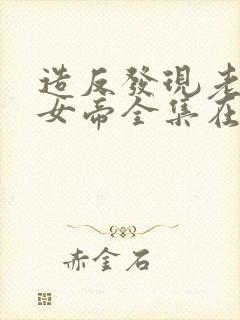 造反發現老
女帝全集在
赤金石